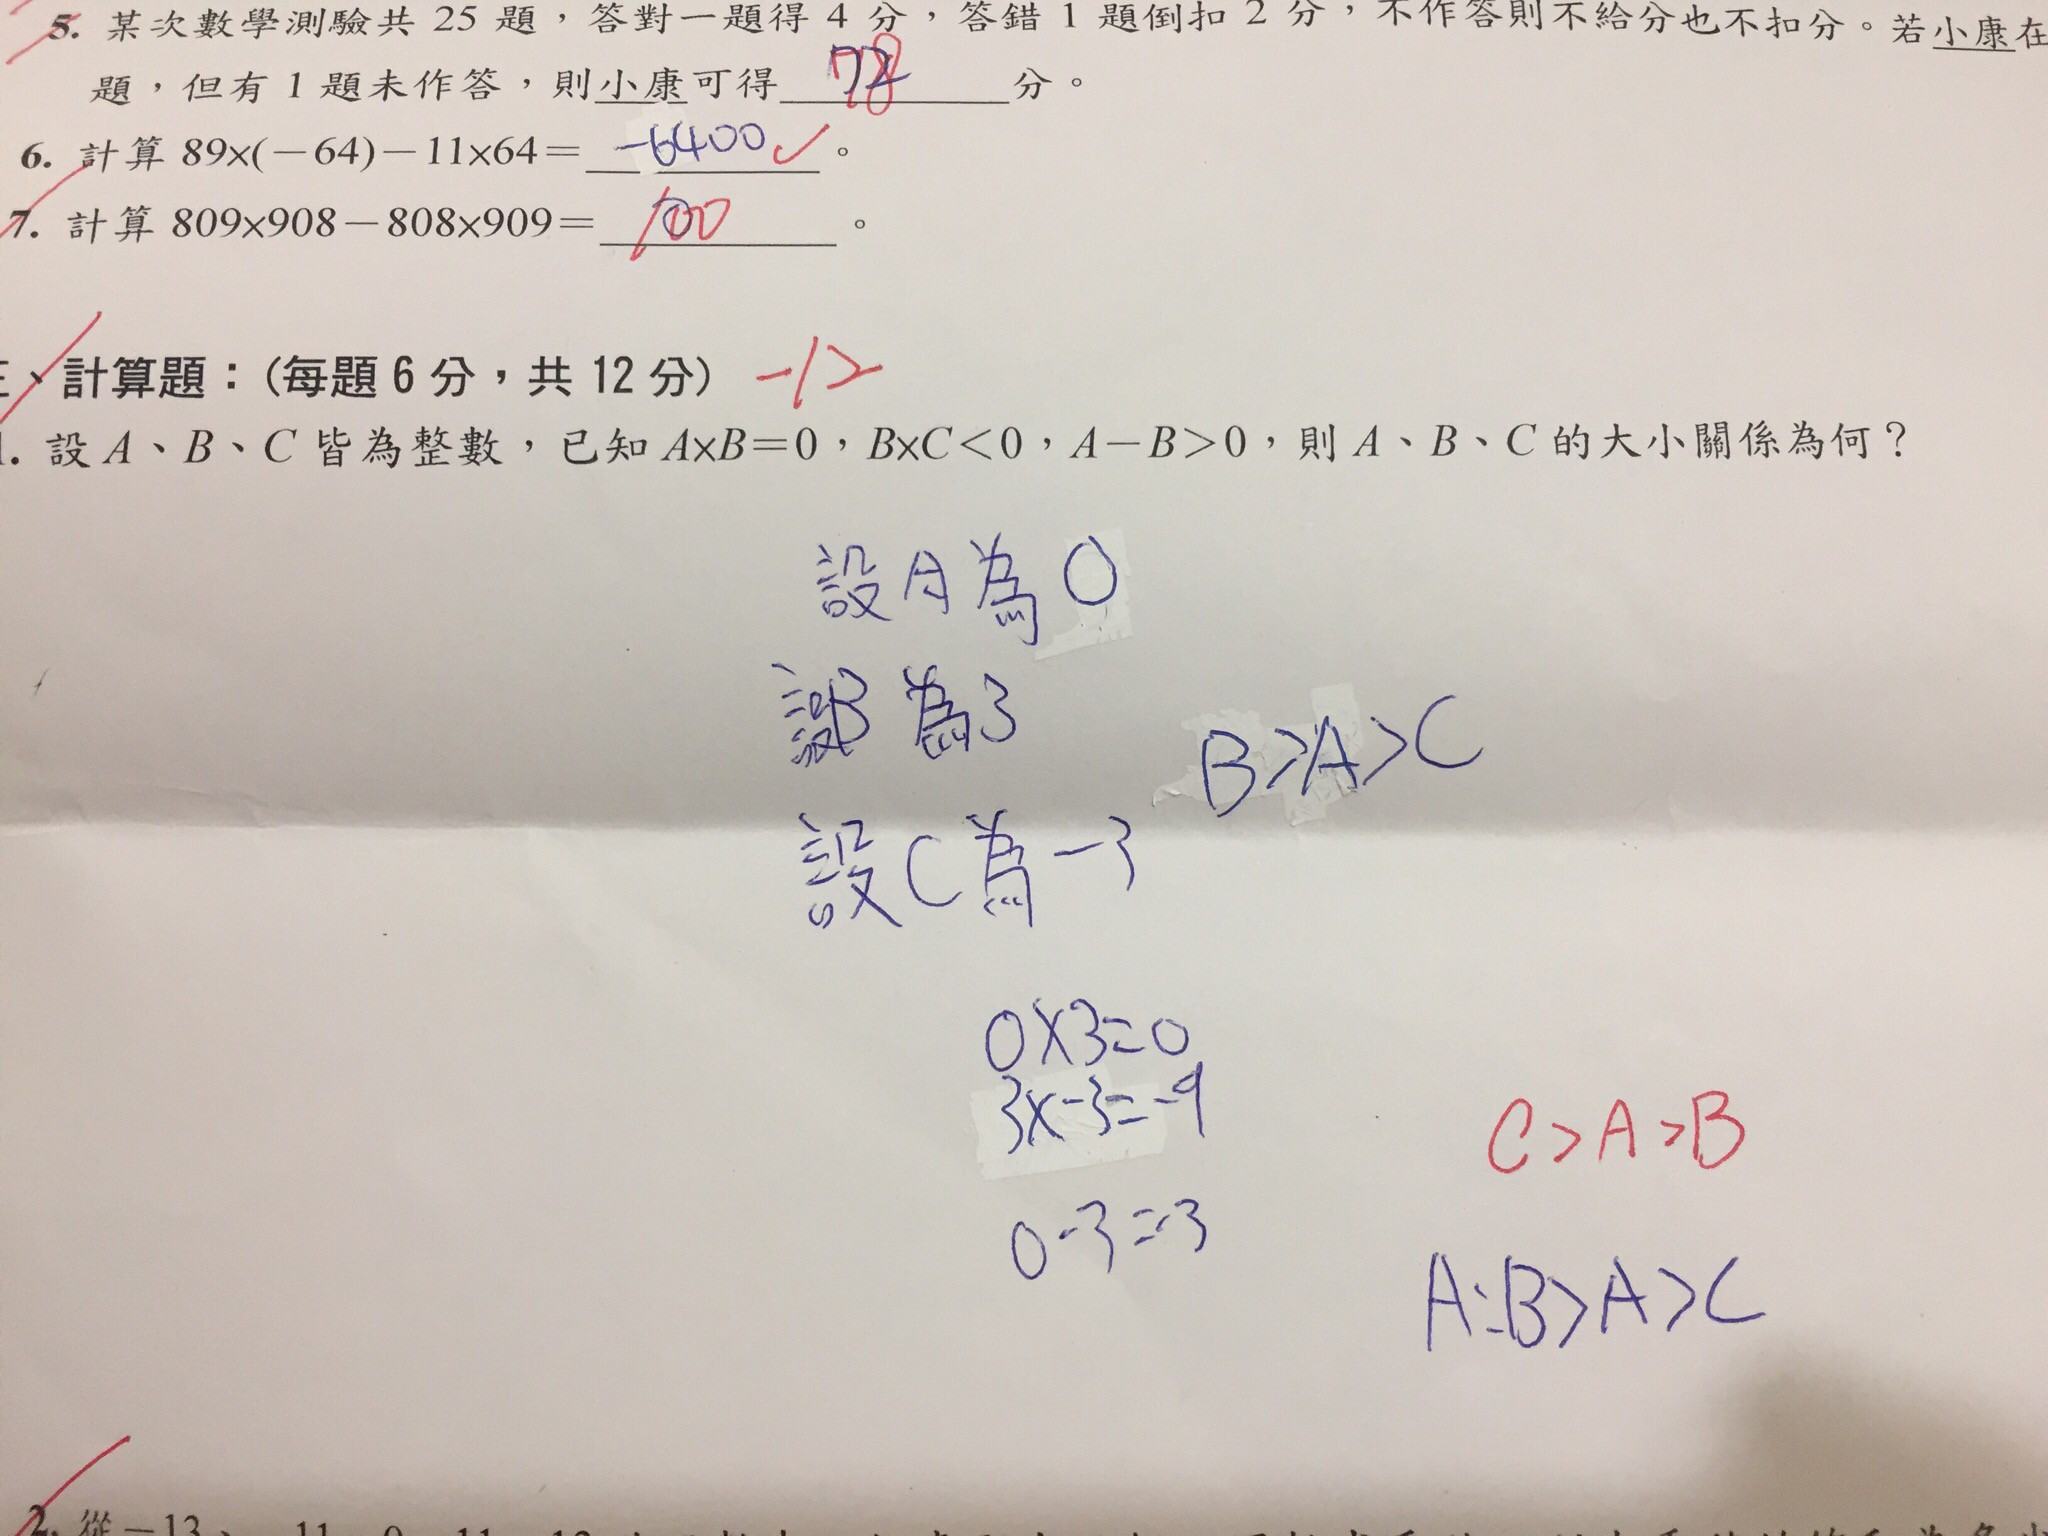 5. 某次數學測驗共 25 題，答對一題得 4 分，答錯 1 題倒扣 2 分，不作答則不給分也不扣分。若小康在
題，但有 1 題未作答，則小康可得 78 分。
6. 計算 89×(－64)－11×64＝ -6400 。
7. 計算 809×908－808×909＝ 100 。
、計算題：(每題 6 分，共 12 分) -12
1. 設 A、B、C 皆為整數，已知 A×B＝0，B×C＜0，A－B＞0，則 A、B、C 的大小關係為何？
設A為0
設B為3
B>A>C
設C為-3
0×3=0
3×-3=-9
C>A>B
0-3=-3
A:B>A>C
2. 從－13、